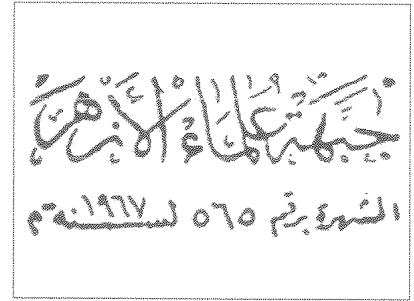 جبهة علماء الأزهر
المشهرة برقم ٥٦٥ لسنة ١٩٦٧م